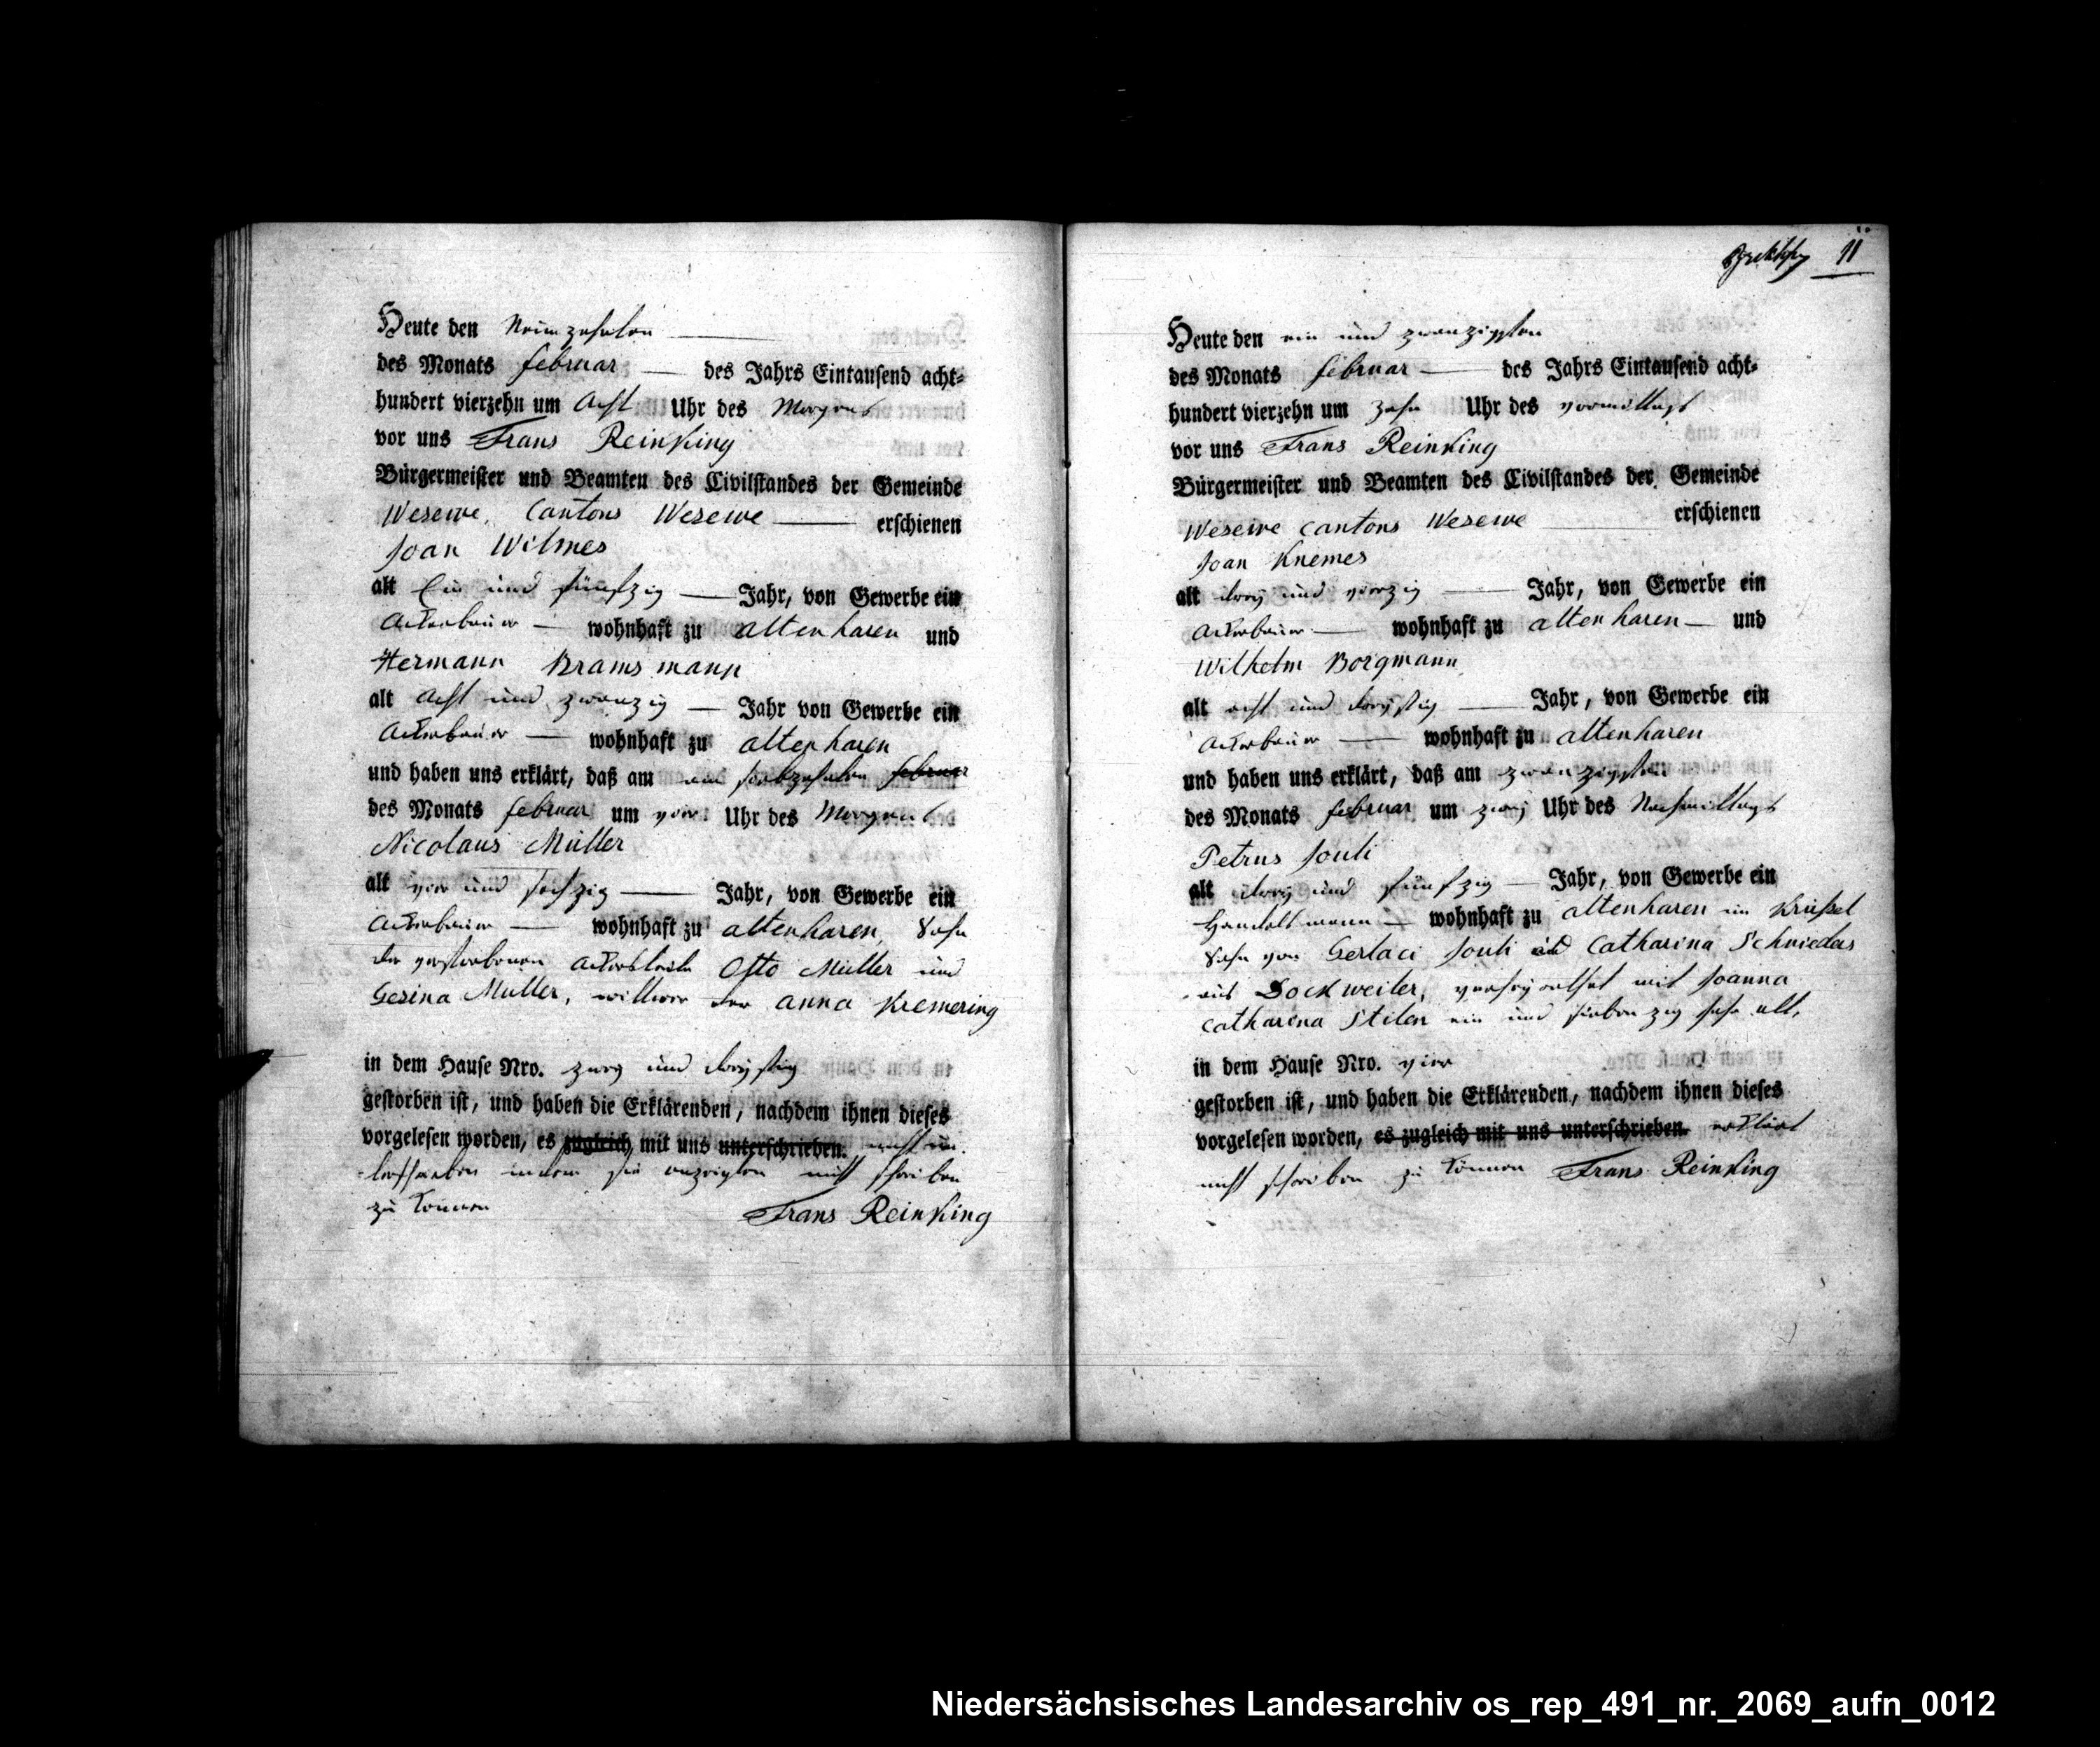 Heute den Neunzehnten
des Monats februar des Jahrs Eintausend acht-
hundert vierzehn um Acht Uhr des Morgens
vor uns Frans Reinking
Bürgermeister und Beamten des Civilstandes der Gemeinde
Wesewe, Cantons Wesewe erschienen
Joan Wilmes
alt Ein und fünfzig Jahr, von Gewerbe ein
Ackerbauer wohnhaft zu altenharen und
Hermann Bramsmann
alt Acht und zwanzig Jahr von Gewerbe ein
Ackerbauer wohnhaft zu altenharen
und haben uns erklärt, daß am siebzehnten februar
des Monats februar um vier Uhr des Morgens
Nicolaus Müller
alt vier und sechzig Jahr, von Gewerbe ein
Ackerbauer wohnhaft zu altenharen, Sohn
der verstorbenen Ackersleute Otto Müller und
Gesina Müller, wittwer der anna Kremering
in dem Hause Nro. zwey und dreyßig
gestorben ist, und haben die Erklärenden, nachdem ihnen dieses
vorgelesen worden, es zugleich mit uns unterschrieben. nicht
indem sie anzeigten nicht schreiben
zu können Frans Reinking
11
Heute den ein und zwanzigsten
des Monats februar des Jahrs Eintausend acht-
hundert vierzehn um zehn Uhr des vormittags
vor uns Frans Reinking
Bürgermeister und Beamten des Civilstandes der Gemeinde
Wesewe cantons Wesewe erschienen
Joan Knemes
alt drey und vierzig Jahr, von Gewerbe ein
Ackerbauer wohnhaft zu altenharen und
Wilhelm Borgmann
alt acht und dreyßig Jahr, von Gewerbe ein
Ackerbauer wohnhaft zu altenharen
und haben uns erklärt, daß am zwanzigsten
des Monats februar um zwey Uhr des Nachmittags
Petrus Jouli
alt drey und fünfzig Jahr, von Gewerbe ein
Handelsmann wohnhaft zu altenharen im Krüßel
Sohn von Gerlaci Jouli und Catharina Schnieders
aus Dockweiler, verheyrathet mit Joanna
Catharina Stilen ein und siebenzig Jahr alt,
in dem Hause Nro. vier
gestorben ist, und haben die Erklärenden, nachdem ihnen dieses
vorgelesen worden, es zugleich mit uns unterschrieben. erklärt
nicht schreiben zu können Frans Reinking
Niedersächsisches Landesarchiv os_rep_491_nr._2069_aufn_0012